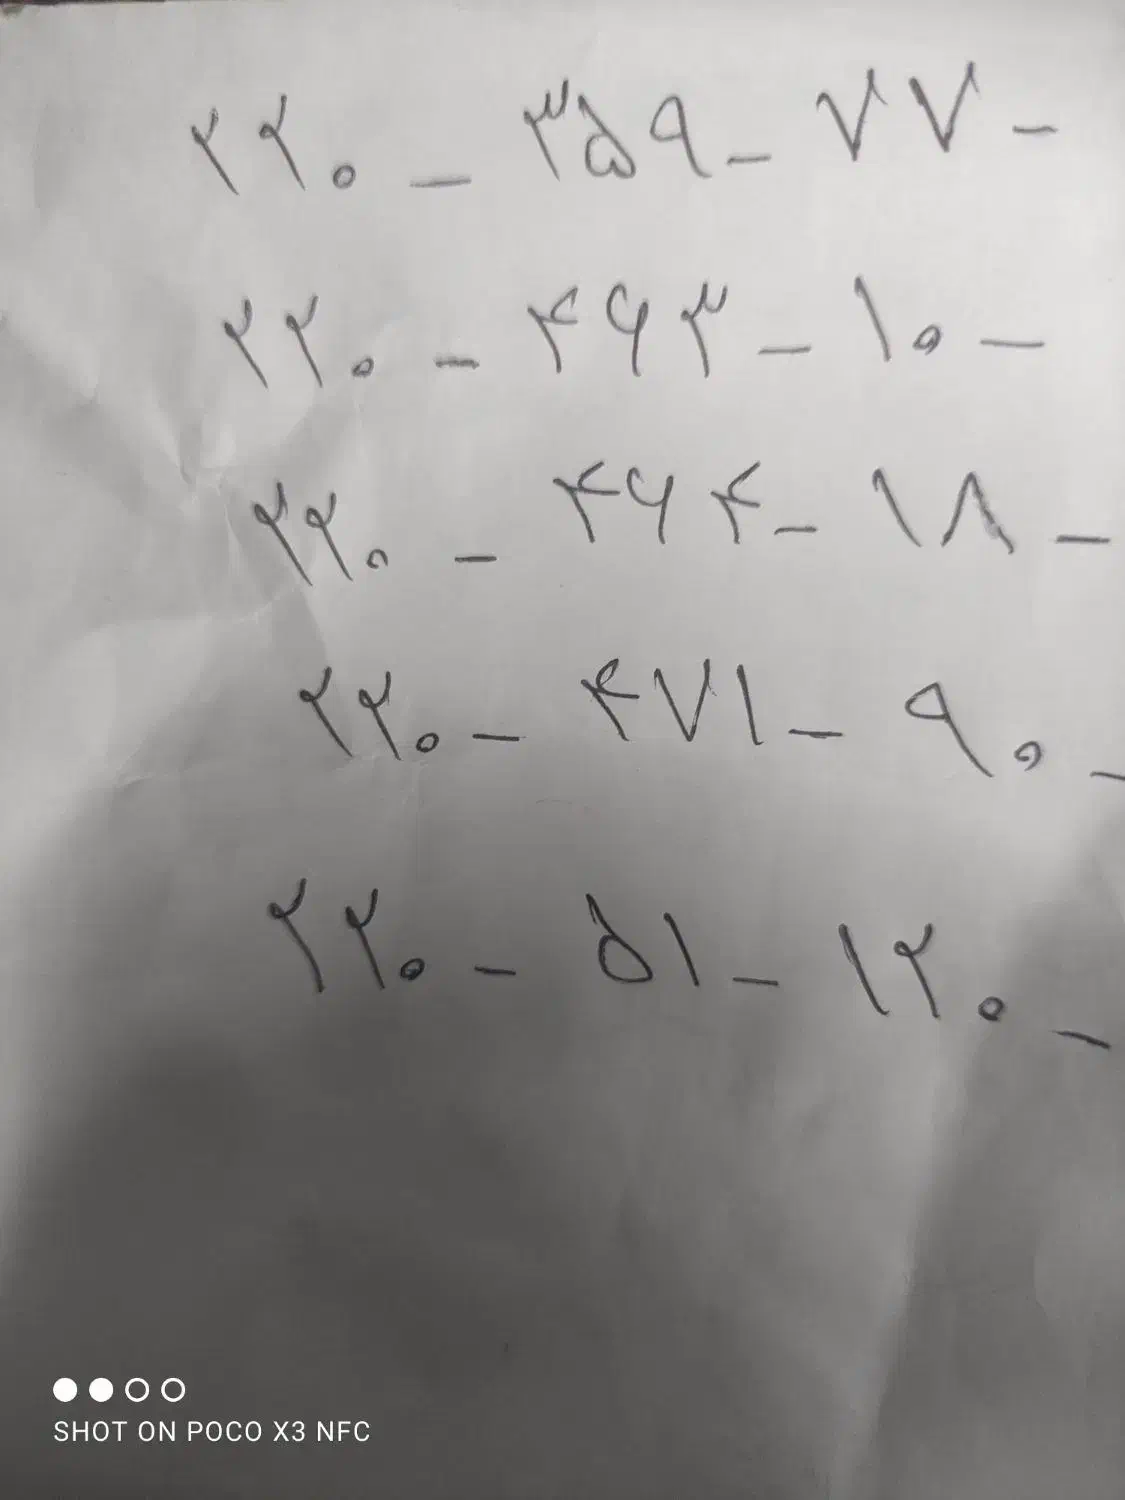 ۲۲۰ - ۳۵۹ - ۷۷ -
۲۲۰ - ۴۶۳ - ۱۰ -
۲۲۰ - ۴۶۴ - ۱۸ -
۲۲۰ - ۴۷۱ - ۹۰ -
۲۲۰ - ۵۱ - ۱۲۰ -
SHOT ON POCO X3 NFC